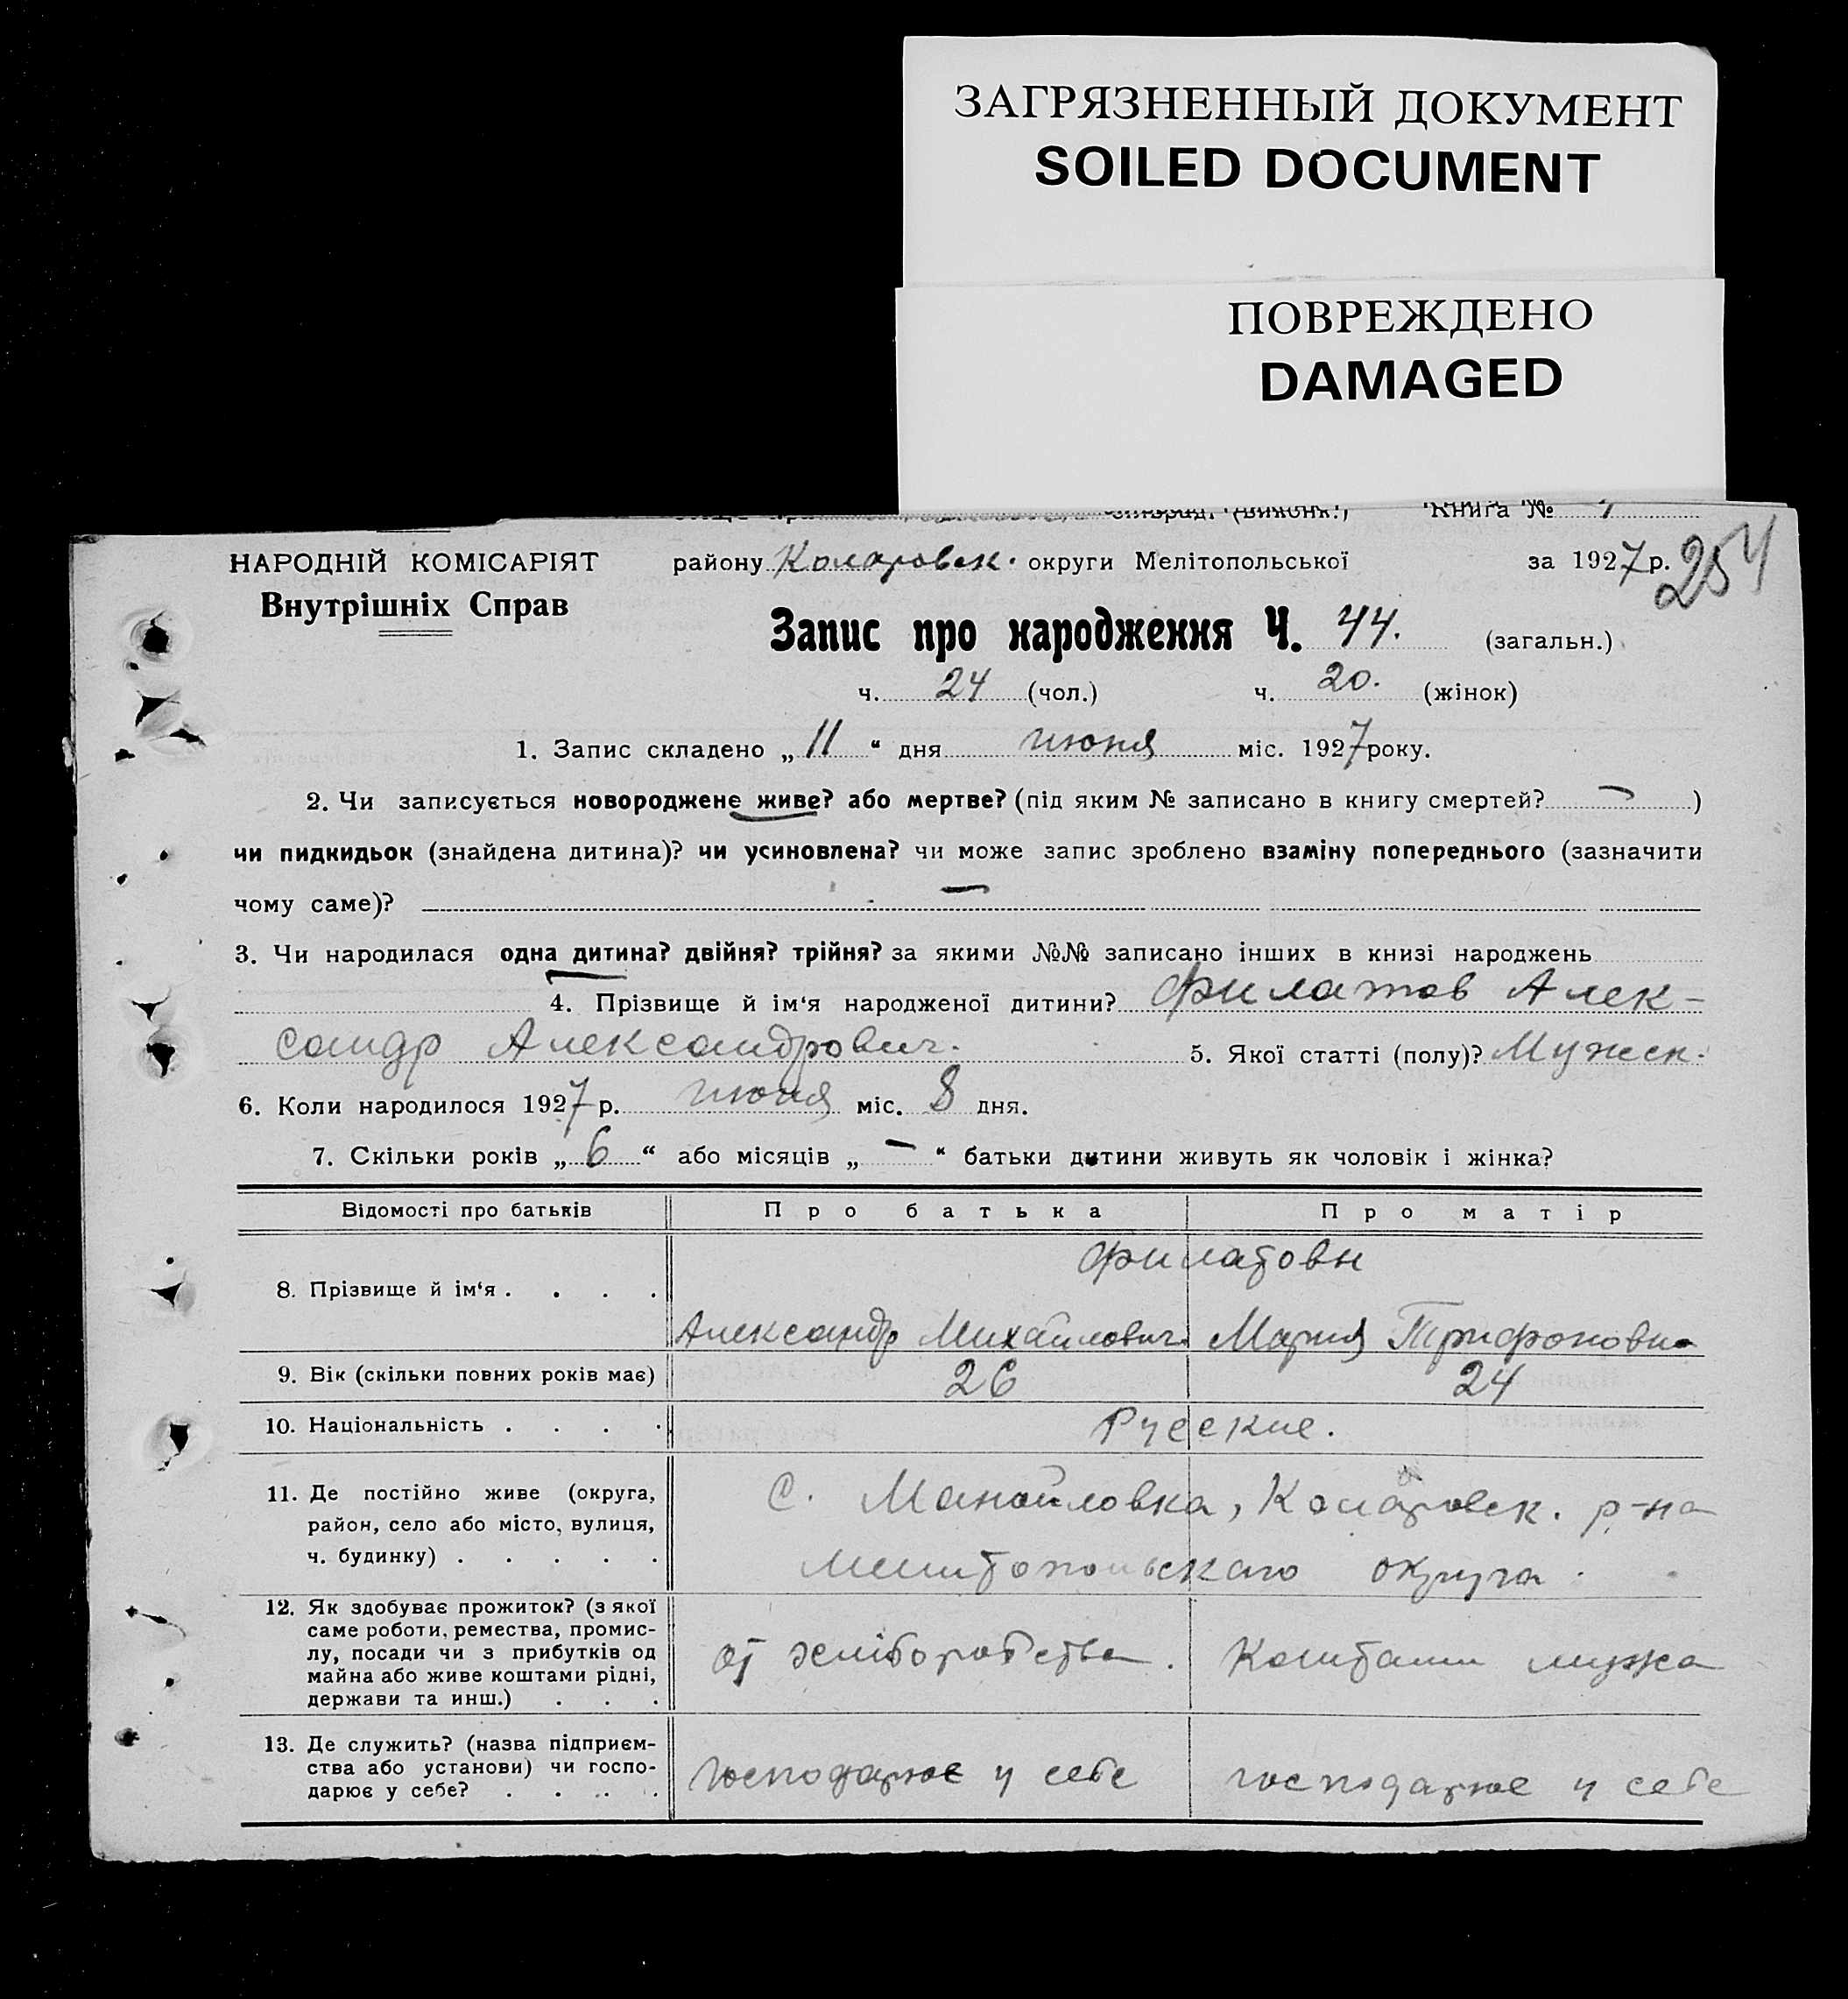 ЗАГРЯЗНЕННЫЙ ДОКУМЕНТ
SOILED DOCUMENT
ПОВРЕЖДЕНО
DAMAGED
Книга №
НАРОДНІЙ КОМІСАРІЯТ
Внутрішніх Справ
району Коларовск. округи Мелітопольської за 1927 р. 254
Запис про народження Ч. 44. (загальн.)
ч. 24 (чол.) ч. 20. (жінок)
1. Запис складено „ 11 “ дня июня міс. 1927 року.
2. Чи записується новороджене живе? або мертве? (під яким № записано в книгу смертей? — )
чи пидкидьок (знайдена дитина)? чи усиновлена? чи може запис зроблено взаміну попереднього (зазначити
чому саме)? —
3. Чи народилася одна дитина? двійня? трійня? за якими №№ записано інших в книзі народжень
4. Прізвище й ім‘я народженої дитини? Филатов Алек-
сандр Александрович. 5. Якої статті (полу)? Мужск.
6. Коли народилося 1927 р. июня міс. 8 дня.
7. Скільки років „ 6 “ або місяців „ — “ батьки дитини живуть як чоловік і жінка?
Відомості про батьків Про батька Про матір
Филатовы
8. Прізвище й ім‘я . . . .
Александр Михайлович. Мария Трифоновна
9. Вік (скільки повних років має) 26 24
10. Національність . . . . Русские.
11. Де постійно живе (округа, район, село або місто, вулиця, ч. будинку) . . . . .
С. Манойловка, Коларовск. р-на
Мелитопольскаго округа.
12. Як здобуває прожиток? (з якої
саме роботи, ремества, промис-
лу, посади чи з прибутків од
майна або живе коштами рідні,
держави та инш.) . . .
от хліборобства. Коштами мужа
13. Де служить? (назва підприєм-
ства або установи) чи госпо-
дарює у себе? . . . .
господарює у себе господарює у себе